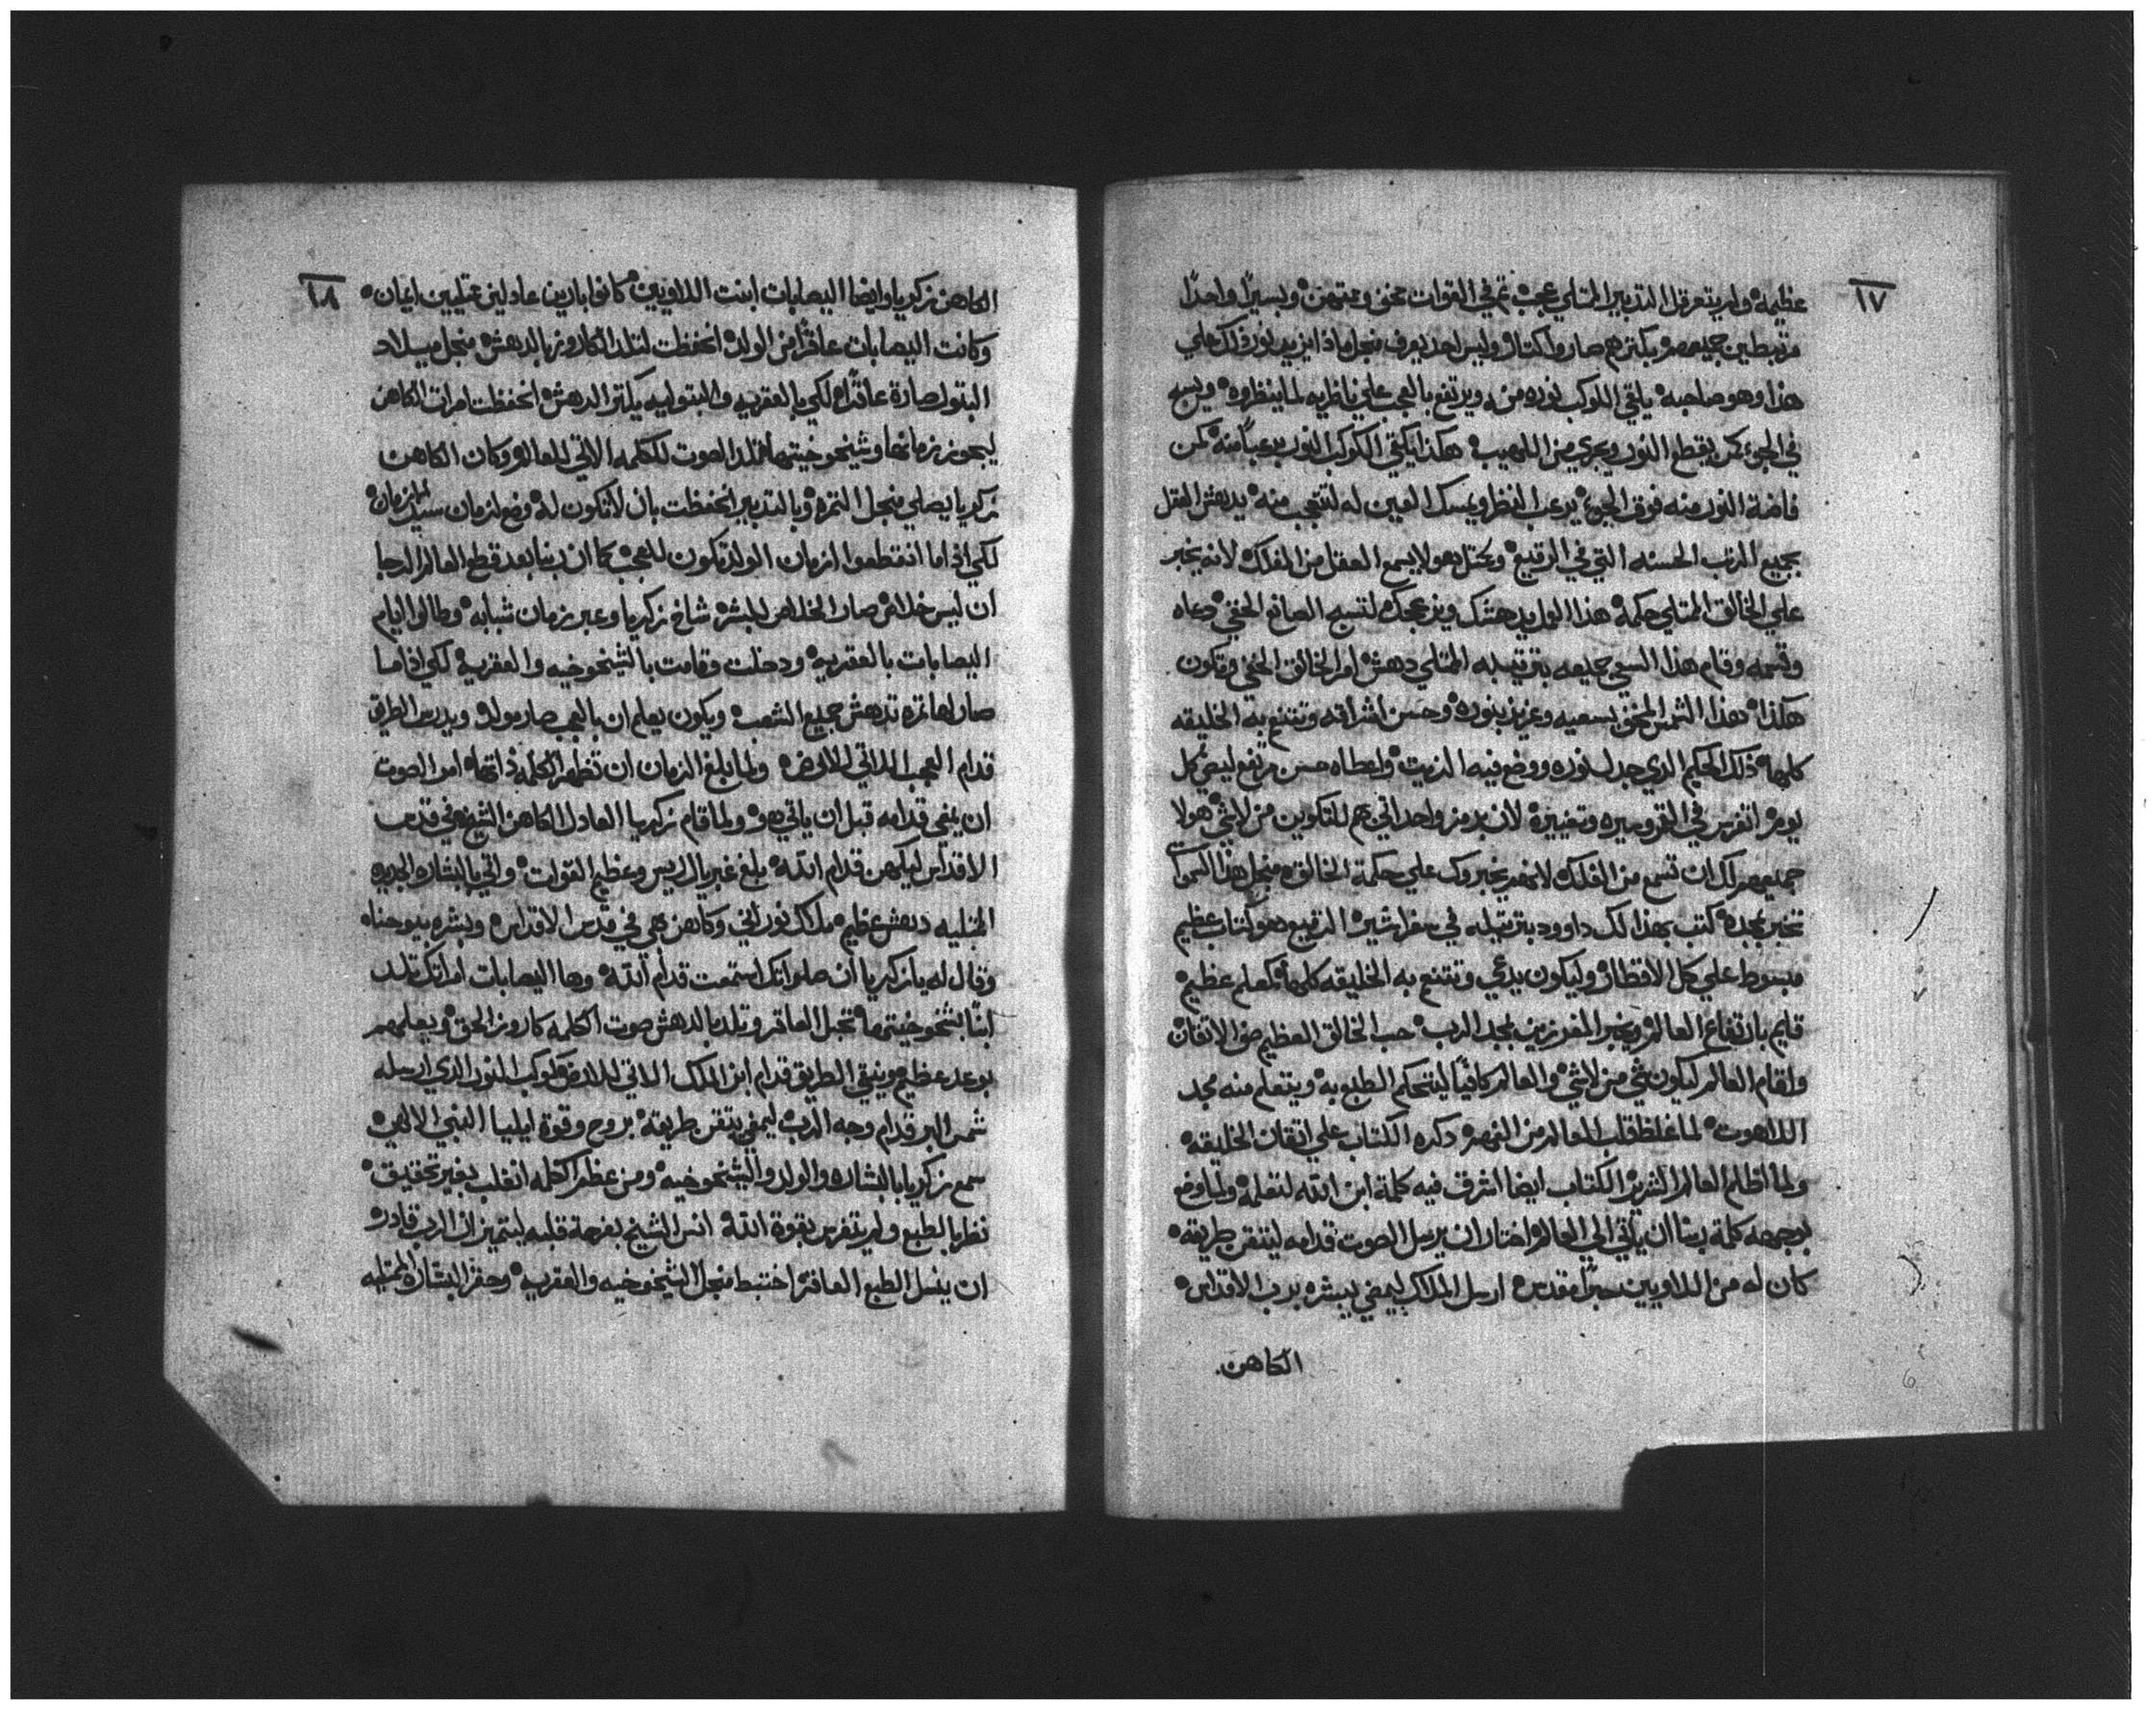 ١٧
عظيمه ولم يتعرقل التدبير الممتلي عجب تم في القوات مخفي وعتهمن ولسيرا واحدا
مرتبطين جميعهم بكترهم صاروا كتار وليس احد يعرف منجل ماذا يزيد نور فلك علي
هذا وهو صاحبه يلقي الكوكب نوره منه ويرتفع بالعجب علي ناظريه لما ينظروه ويسبح
في الجو كمن يقطع النور ويعري من اللهيب هكذا يكتفي الكوكب النور يرعبا منه كمن
فاضة النور منه فوق الجو يرعب النظر ويمسك العين له لتتعجب منه يدهش العقل
بجميع الرتب الحسنه التي في الرقيع هولا يسمع العقل من الفلك لانه يخبر
علي الخالق الممتلي حكمة هذا الواد يدهشك ويزعجك لتسبح الصانع الخفي دعاه
وتممه وقام هذا السعي جميعه بترتيبه الممتلي دهش امر الخالق الخفي وتكون
هكذا هذا الشمس المخفي بسعيه وعزيز بنوره وحسن اشراقه وتتنعم به الخليقه
كلها ذلك الحكيم الدي جدل نوره ووضع فيه الزيت واعطاه حسن مرتفع ليضي كل
يوم اتفرس في القمر وسيره وتغييره لان برمز واحد اتي بهم للتكوين من لاشي هولا
جميعهم لك ان تسمع من الفلك لانهم يخبروك علي حكمة الخالق منجل هذا السموات
تخبر بمجده كتب بهذا لك داوود بترتيله في سفر اشيره الرقيع هو كتاب عظيم
مبسوط علي كل الاقطار وليكون يدعي وتتنعم به الخليقه كلها كمعلم عظيم
قايم بارتفاع العالم ويخبر المفرزين بمجد الرب حب الخالق العظيم حتي الاتقان
واقام العالم ليكون شي من لاشي والعالم كافيا ليتحكم الطبع به ويتعلم منه مجد
اللاهوت لما غلظ قلب العالم من الفهم دكره الكتاب علي اتقان الخليقه
ولما اظلم العالم الشرير الكتاب ايضا اشرق فيه كلمة ابن الله لتعلمه ولما وضع
بوجهه كلمة ربنا ان ياتي الي العالم اختار ان يرسل الصوت قدامه ليتقن طريقه
كان له من اللاويين حبرا مقدس ارسل الملاك ليمضي يبشره برب الاقداس
الكاهن
١٨
الكاهن زكريا وايضا اليصابات ابنت اللاويين كانوا بارين عادلين ايمان
وكانت اليصابات عاقرا من الولد انحفظت لتلد الكاروز بالدهش منجل ميلاد
البتول صارة عاقرا لكي بالعقريه والبتوليه يكتر الدهش انحفظت امرات الكاهن
ليجوز زمانها وشيخوخيتها لتلد الصوت للكلمه الاتي للعالم وكان الكاهن
زكريا يصلي منجل التمره وبالتدبير انحفظت بان لا تكون له وضع لزمان سيد الازمان
لكي اذا ما انقطعوا ازمان الولد تكون للعجب كما ان ربنا بعد قطع العالم الرجا
ان ليس خلاص صار الخلاص للبشر شاخ زكريا وعبر زمان شبابه وطالوا ايام
اليصابات بالعقريه ودخلت وقامت بالشيخوخيه والعقريه لكي اذا ما
صار لها تمره تدهش جميع الشعب ويكون يعلم ان بالعجب صار مولد ويدرس الطريق
قدام العجب الاتي للارض ولما بلغ الزمان ان تظهر الكلمه ذاتها امر الصوت
ان يمضي قدامه قبل ان ياتي هو ولما قام زكريا العادل الكاهن الشيخ في قدس
الاقداس ليكهن قدام الله بلغ غبريال الريس وعظيم القوات واتي بالبشاره الجديده
المتليه دهش عظيم ملاك نوراني وكاهن بهي في قدس الاقداس وبشره بيوحناه
وقال له يا زكريا ان صلواتك استمعت قدام الله وها اليصابات امراتك تلد
ابنا بشيخوخيتها تحبل العاقر وتلد بالدهش صوت الكلمه كاروز الحق ويعلمهم
بوعد عظيم وينقي الطريق قدام ابن الملك الاتي للارض كوكب النور الدي ارسله
شمس البر قدام وجه الرب ليمضي يتقن طريقه بروح وقوة ايليا النبي الالهي
سمع زكريا بالبشاره والولد والشيخوخيه ومن عظم الكلمه انغلب بغير تحقيق
نظر بالطبع ولم يتفرس بقوة الله انسر الشيخ بفرحة قلبه ليتميز ان الرب قادر
ان ينسل الطبع العاقر اختبط منجل الشيخوخيه والعقريه وحقر البشاره الممتليه